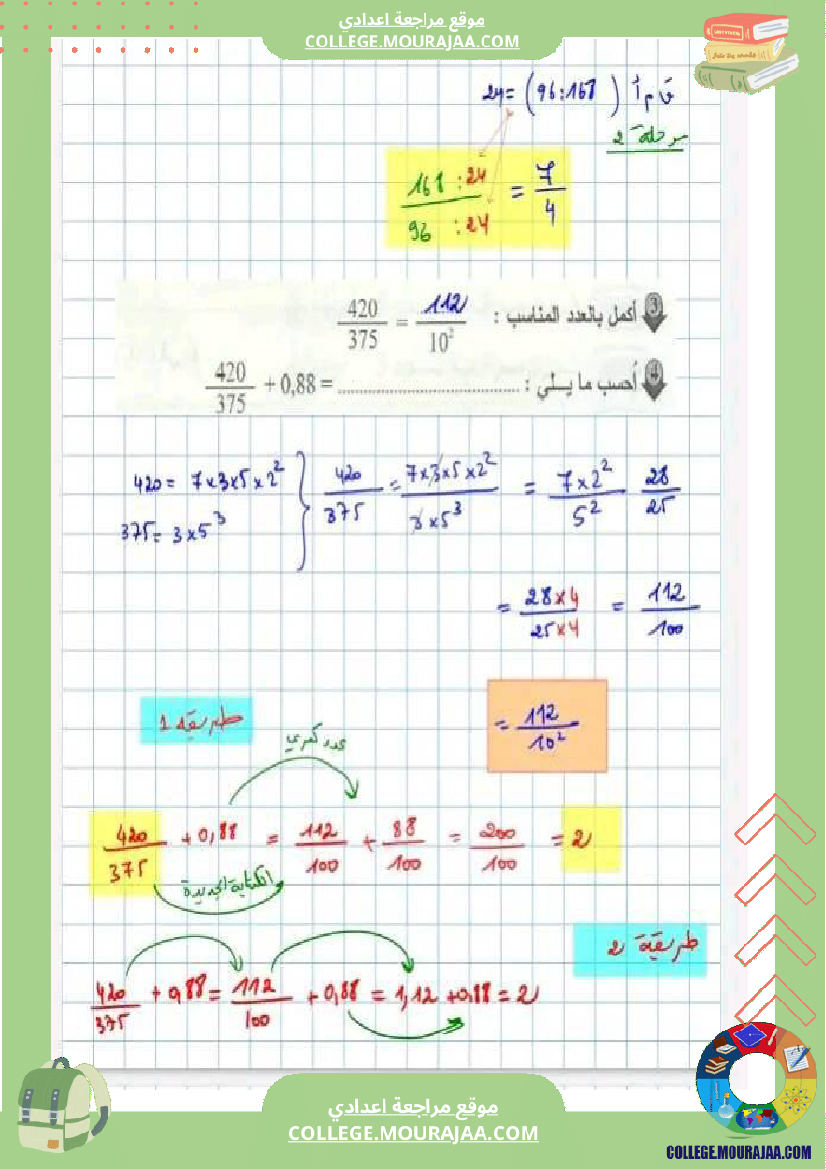 موقع مراجعة اعدادي
COLLEGE.MOURAJAA.COM
ق م أ (96:168) =24
مرحلة 2
168 :24 / 96 :24 = 7/4
3 أكمل بالعدد المناسب : 420/375 = 112/10²
4 أحسب ما يلي : ........................................ = 420/375 + 0,88
420 = 7×3×5×2²
375 = 3×5³
420/375 = 7×3×5×2²/3×5³ = 7×2²/5² 28/25
= 28×4/25×4 = 112/100
= 112/10²
طريقة 1
عدد كسري
420/375 + 0,88 = 112/100 + 88/100 = 200/100 = 2
الكتابة الجديدة
طريقة 2
420/375 + 0,88 = 112/100 + 0,88 = 1,12 + 0,88 = 2
موقع مراجعة اعدادي
COLLEGE.MOURAJAA.COM
COLLEGE.MOURAJAA.COM